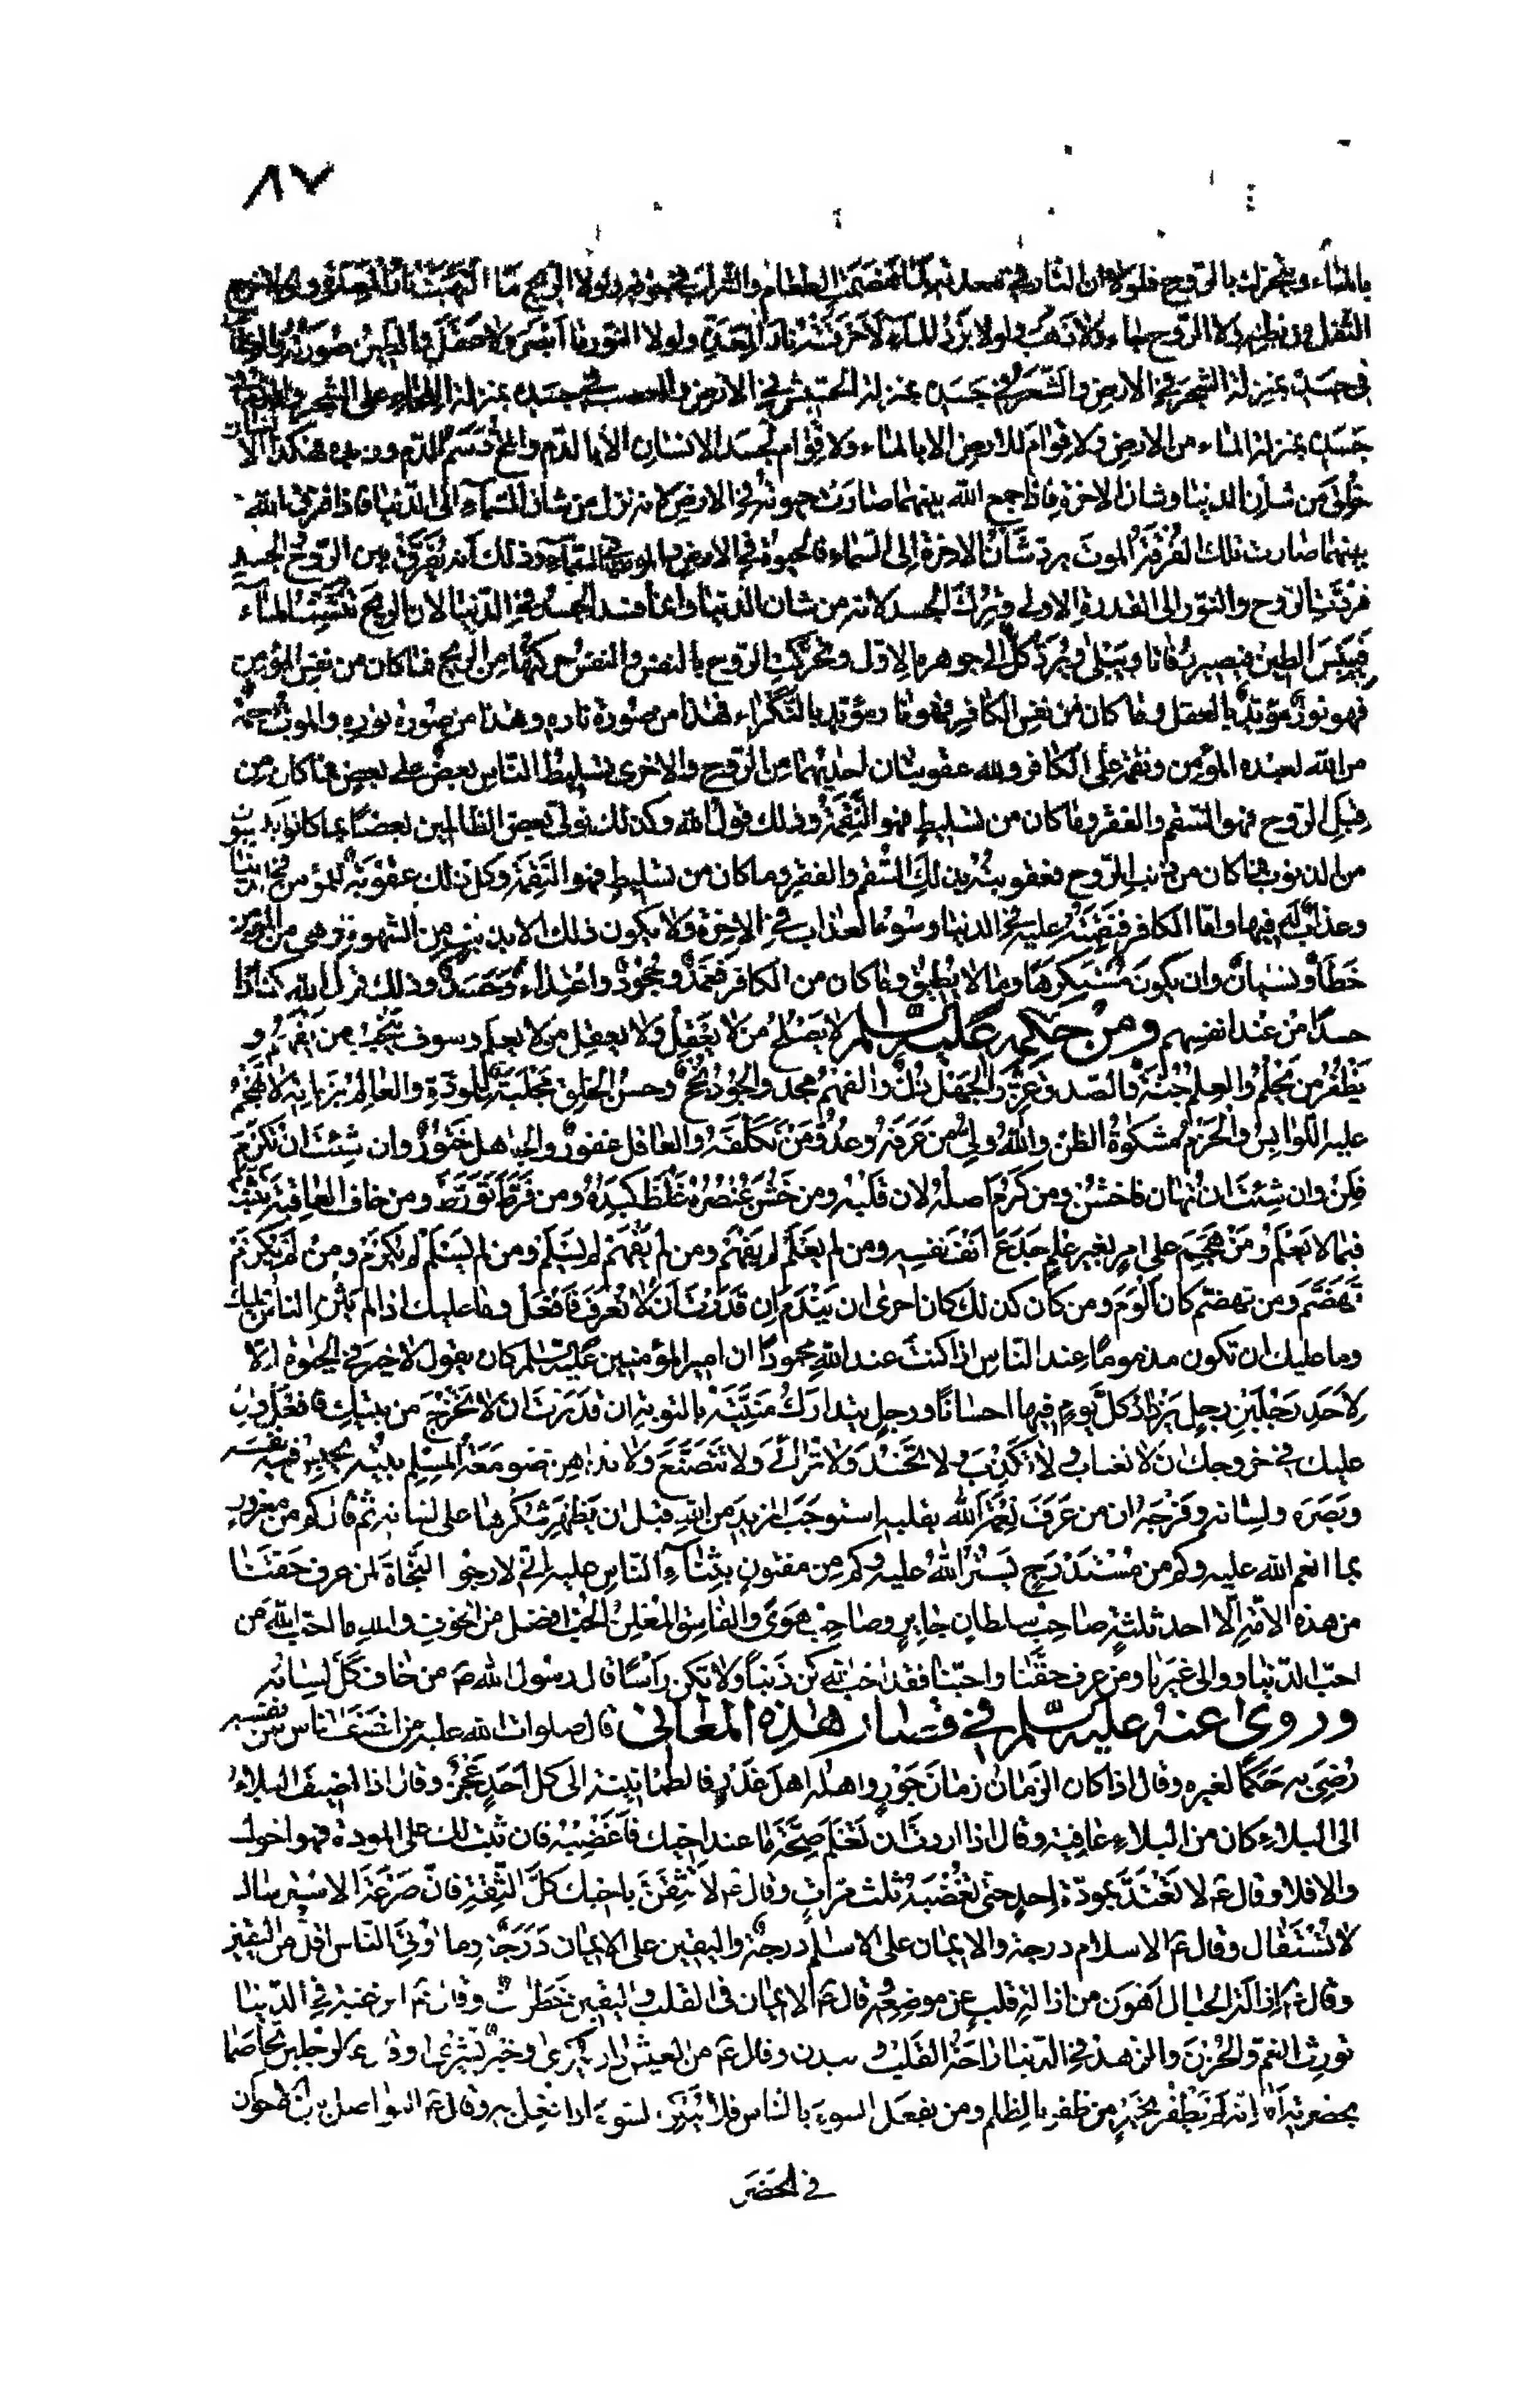 ٨٧
بالماء ويتحرك بالروح فلولا ان النار في معدته لما هضمت الطعام والشراب في جوفه ولولا الريح ما التهبت نار المعدة ولا خرج
الثفل من بطنه ولولا الروح لا جاء ولا ذهب ولولا برد الماء لاحرقته نار المعدة ولولا النور ما أبصر ولا عقل والطين صورته والعظم
في جسده بمنزلة الشجر في الارض والشعر في جسده بمنزلة الحشيش في الارض والعصب في جسده بمنزلة اللحاء على الشجر والدم في
جسده بمنزلة الماء من الارض ولا قوام للارض الا بالماء ولا قوام لجسد الانسان الا بالدم والمخ دسم الدم وزبده فهكذا الانسان
خلق من شأن الدنيا وشأن الاخرة فاذا جمع الله بينهما صارت حيوته في الارض لانه نزل من شأن السماء الى الدنيا فاذا فرق الله
بينهما صارت تلك الفرقة الموت يرد شأن الاخرة الى السماء فالحيوة في الارض والموت في السماء وذلك أنه يفرق بين الروح والجسد
فردت الروح والنور الى القدرة الاولى وترك الجسد لانه من شأن الدنيا وانما فسد الجسد في الدنيا لان الريح تنشف الماء
فييبس الطين فيصير رفاتا ويبلى ويرد كل الى جوهره الاول وتحركت الروح بالنفس والنفس حركتها من الريح فما كان من نفس المؤمن
فهو نور مؤيد بالعقل وما كان من نفس الكافر فهو نار مؤيد بالنكراء فهذا من صورة ناره وهذا من صورة نوره والموت رحمة
من الله لعبده المؤمن ونقمة على الكافر ولله عقوبتان احديهما من الروح والاخرى تسليط الناس بعض على بعض فما كان من
قبل الروح فهو السقم والفقر وما كان من تسليط فهو النقمة وذلك قول الله وكذلك نولي بعض الظالمين بعضا بما كانوا يكسبون
من الذنوب فما كان من ذنب الروح فعقوبته بذلك السقم والفقر وما كان من تسليط فهو النقمة وكل ذلك عقوبة للمؤمن في الدنيا
وعذاب له فيها واما الكافر فنقمة عليه في الدنيا وسوء العذاب في الاخرة ولا يكون ذلك الا بذنب والذنب من الشهوة وهي من المؤمن
خطأ ونسيان وان يكون مستكرها وما لا يطيق وما كان من الكافر فعمد وجحود واعتداء وحسد وذلك قول الله كفارا
حسدا من عند انفسهم ومن حكمه عليه السلم لا يصلح من لا يعقل ولا يعقل من لا يعلم وسوف ينجب من يفهم و
يظفر من يحلم والعلم جنة والصدق عز والجهل ذل والفهم مجد والجود نجح وحسن الخلق مجلبة للمودة والعالم بزمانه لا تهجم
عليه اللوابس والحزم مشكوة الظن والله ولي من عرفه وعدو من تكلفه والعاقل غفور والجاهل ختور وان شئت ان تكرم
فلن وان شئت ان تهان فاخشن ومن كرم اصله لان قلبه ومن خشن عنصره غلظ كبده ومن فرط تورط ومن خاف العاقبة تثبت
فيما لا يعلم ومن هجم على امر بغير علم جدع انف نفسه ومن لم يعلم لم يفهم ومن لم يفهم لم يسلم ومن لم يسلم لم يكرم ومن لم يكرم
تهضم ومن تهضم كان الوم ومن كان كذلك كان احرى ان يندم ان قدرت أن لا تعرف فافعل وما عليك اذا لم يثن الناس عليك
وما عليك ان تكون مذموما عند الناس اذا كنت عند الله محمودا ان امير المؤمنين عليه السلم كان يقول لا خير في الحيوة الا
لاحد رجلين رجل يزداد كل يوم فيها احسانا ورجل يتدارك منيته بالتوبة ان قدرت ان لا تخرج من بيتك فافعل وان
عليك في خروجك ان لا تغتاب ولا تكذب ولا تحسد ولا ترائي ولا تتصنع ولا تداهن صومعة المسلم بيته يحبس فيه نفسه
وبصره ولسانه وفرجه ان من عرف نعمة الله بقلبه استوجب المزيد من الله قبل ان يظهر شكرها على لسانه ثم قال كم من مغرور
بما انعم الله عليه وكم من مستدرج بستر الله عليه وكم من مفتون بثناء الناس عليه اني لارجو النجاة لمن عرف حقنا
من هذه الامة الا احد ثلثة صاحب سلطان جاير وصاحب هوى والفاسق المعلن الحب افضل من الخوف والله ما احب الله من
احب الدنيا ووالى غيرنا ومن عرف حقنا واحبنا فقد احب الله كن ذنبا ولا تكن رأسا قال رسول الله ص من خاف كل لسانه
وروى عنه عليه السلم في قصار هذه المعاني قال صلوات الله عليه من انصف الناس من نفسه
رضي به حكما لغيره وقال اذا كان الزمان زمان جور واهله اهل غدر فالطمانينة الى كل أحد عجز وقال اذا اضيف البلاء
الى البلاء كان من البلاء عافية وقال اذا اردت ان تعلم صحة ما عند اخيك فأغضبه فان ثبت لك على المودة فهو اخوك
والا فلا وقال ع لا تعتد بمودة احد حتى تغضبه ثلث مرات وقال ع لا تثقن باخيك كل الثقة فان صرعة الاسترسال
لا تستقال وقال ع الاسلام درجة والايمان على الاسلام درجة واليقين على الايمان درجة وما اوتي الناس اقل من اليقين
وقال ع ازالة الجبال اهون من ازالة قلب عن موضعه وقال ع الايمان في القلب واليقين خطرات وقال ع الرغبة في الدنيا
تورث الغم والحزن والزهد في الدنيا راحة القلب والبدن وقال ع من العيش دار يكرى وخبز يشرى وقال ع لرجلين تخاصما
بحضرته أما إنه لم يظفر بخير من ظفر بالظلم ومن يفعل السوء بالناس فلا ينكر السوء اذا فعل به وقال ع التواصل بين الاخوان
في الحضر